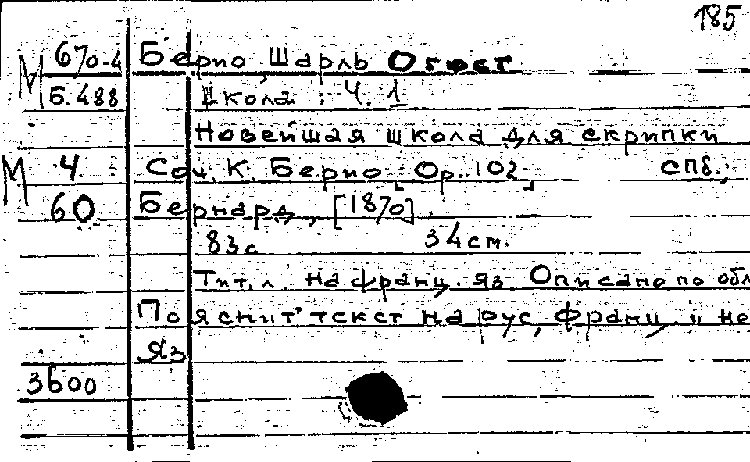 185
М 670-4 Берио, Шарль Огюст
Б.488 Школа: Ч. 1
Новейшая школа для скрипки
М 4 Соч. К. Берио. [Ор. 102] СПб.;
60 Бернард, [1870].
83с 34см.
Тит. л. на франц. яз. Описано по обл
Пояснит текст на рус, франц, и не
яз
3600